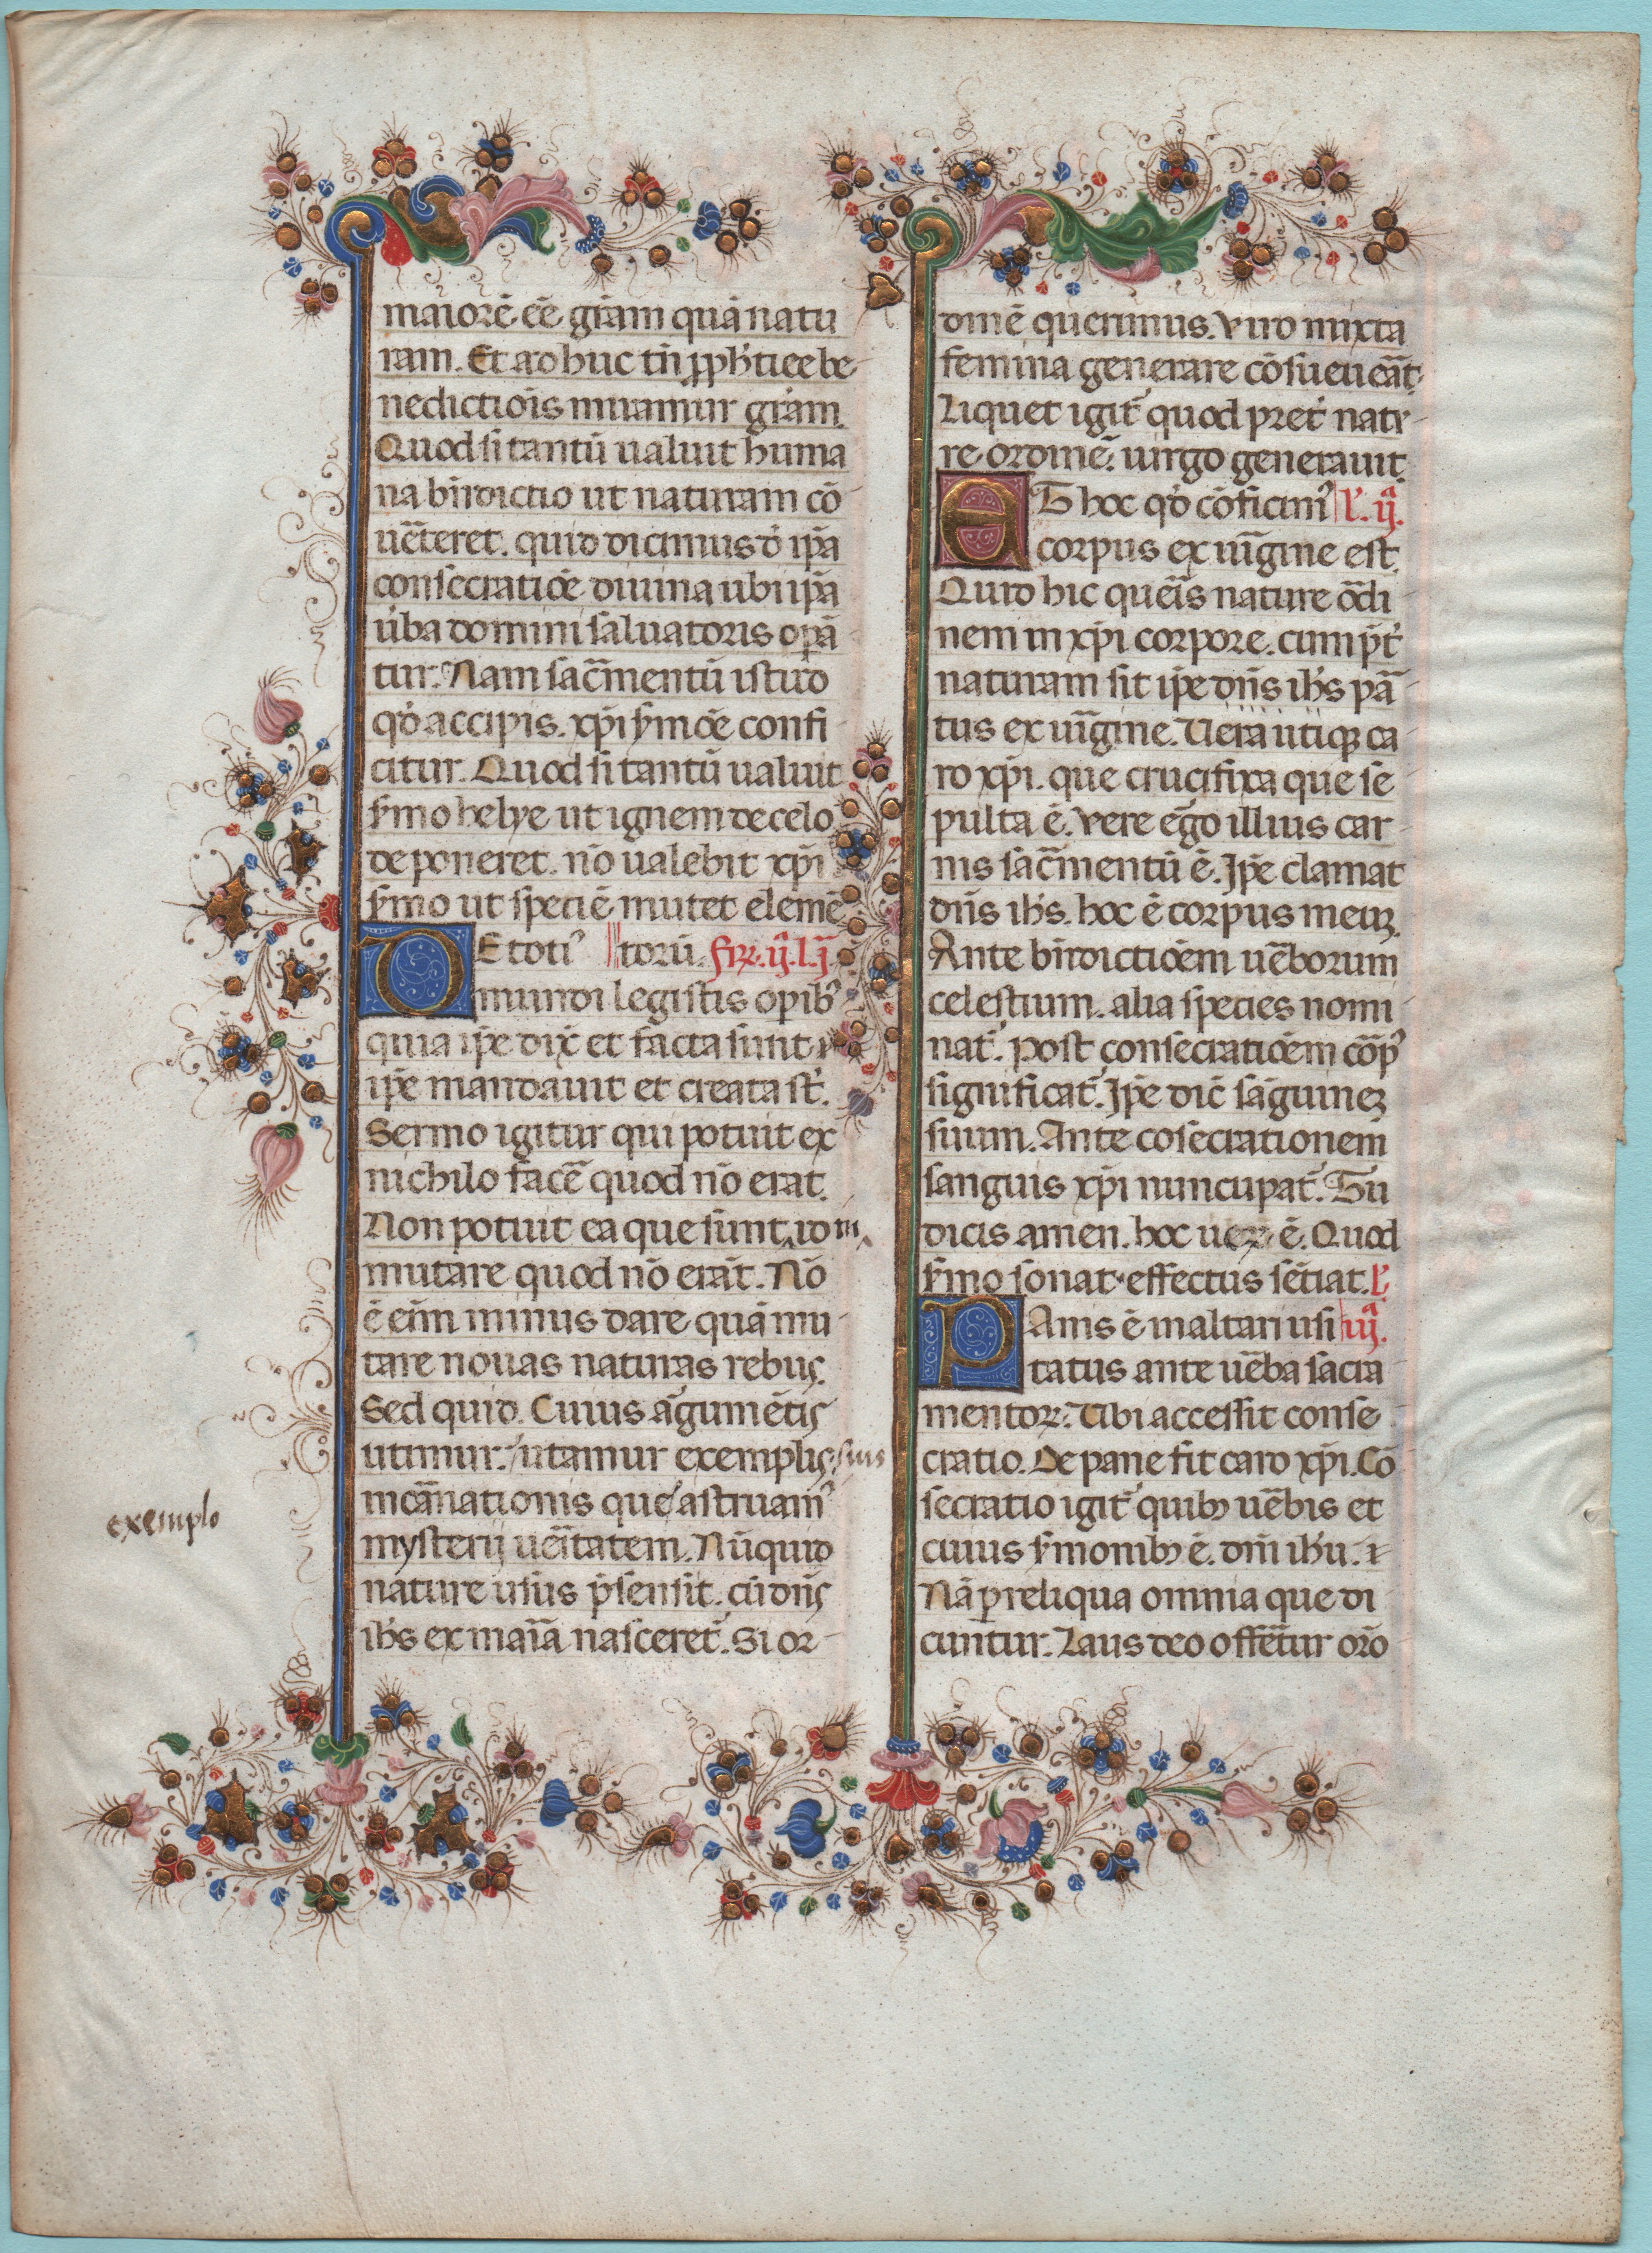 maiorē eē grām quā natu
ram. Et adhuc tn̄ ꝓph̄tice be
nedictiōis miramur grām.
Quod si tantū ualuit huma
na bn̄dictio ut naturam cō
ūteret. quid dicimus d̄ ip̄a
consecratiōe diuina ubi ip̄a
ūba domini saluatoris opā
tur. Nam sac̄mentū istud
qd̄ accipis. xp̄i s̄mōe confi
citur. Quod si tantū ualuit
s̄mo helye ut ignem de celo
deponeret. nō ualebit xp̄i
s̄mo ut speciē mutet elemē
DE toti᾽ torū. fr̄. ij. l. j.
mundi legistis opib᾽
quia ip̄e dix̄ et facta sunt
ip̄e mandauit et creata st̄.
Sermo igitur qui potuit ex
nichilo facē quod nō erat.
Non potuit ea que sunt id in
mutare quod nō erāt. Nō
ē enī minus dare quā mu
tare nouas naturas rebus.
Sed quid. Cuius āgumētis
utimur. utamur exemplis. suis
incānationis que astruam᾽
exemplo
mysterij ueītatem. Nūquid
nature usus p̄sensit. cū dn̄s
ih̄s ex maīa nasceret̄. Si or
dinē querimus. viro mixta
femina generare cōsueueāt.
Liquet igit̄ quod p̄ret̄ natu
re ordinē. uirgo generauit.
ET hoc qd̄ cōficim᾽ l. ij.
corpus ex uīgine est.
Quid hic queīs nature ōdi
nem in xp̄i corpore. cum p̄t̄
naturam sit ip̄e dn̄s ih̄s pā
tus ex uīgine. Uera utiqꝫ ca
ro xp̄i. que crucifixa que se
pulta ē. vere ēgo illius car
nis sac̄mentū ē. Ip̄e clamat
dn̄s ih̄s. hoc ē corpus meuꝫ.
Ante bn̄dictiōem uēborum
celestium. alia species nomi
nat̄. post consecratiōem cōp᾽
significat̄. Ip̄e dic̄ sāguineꝫ
suum. Ante cosecrationem
sanguis xp̄i nuncupat̄. Tu
dicis amen. hoc ueꝝ ē. Quod
s̄mo sonat. effectus sētiat. l.
PAnis ē in altari usi iij.
tatus ante uēba sacra
mentoꝝ. Ubi accessit conse
cratio. De pane fit caro xp̄i. Cō
secratio igit̄ quibꝫ uēbis et
cuius s̄monibꝫ ē. dn̄i ih̄u. ⁊
Nā p reliqua omnia que di
cuntur. Laus deo offētur orō